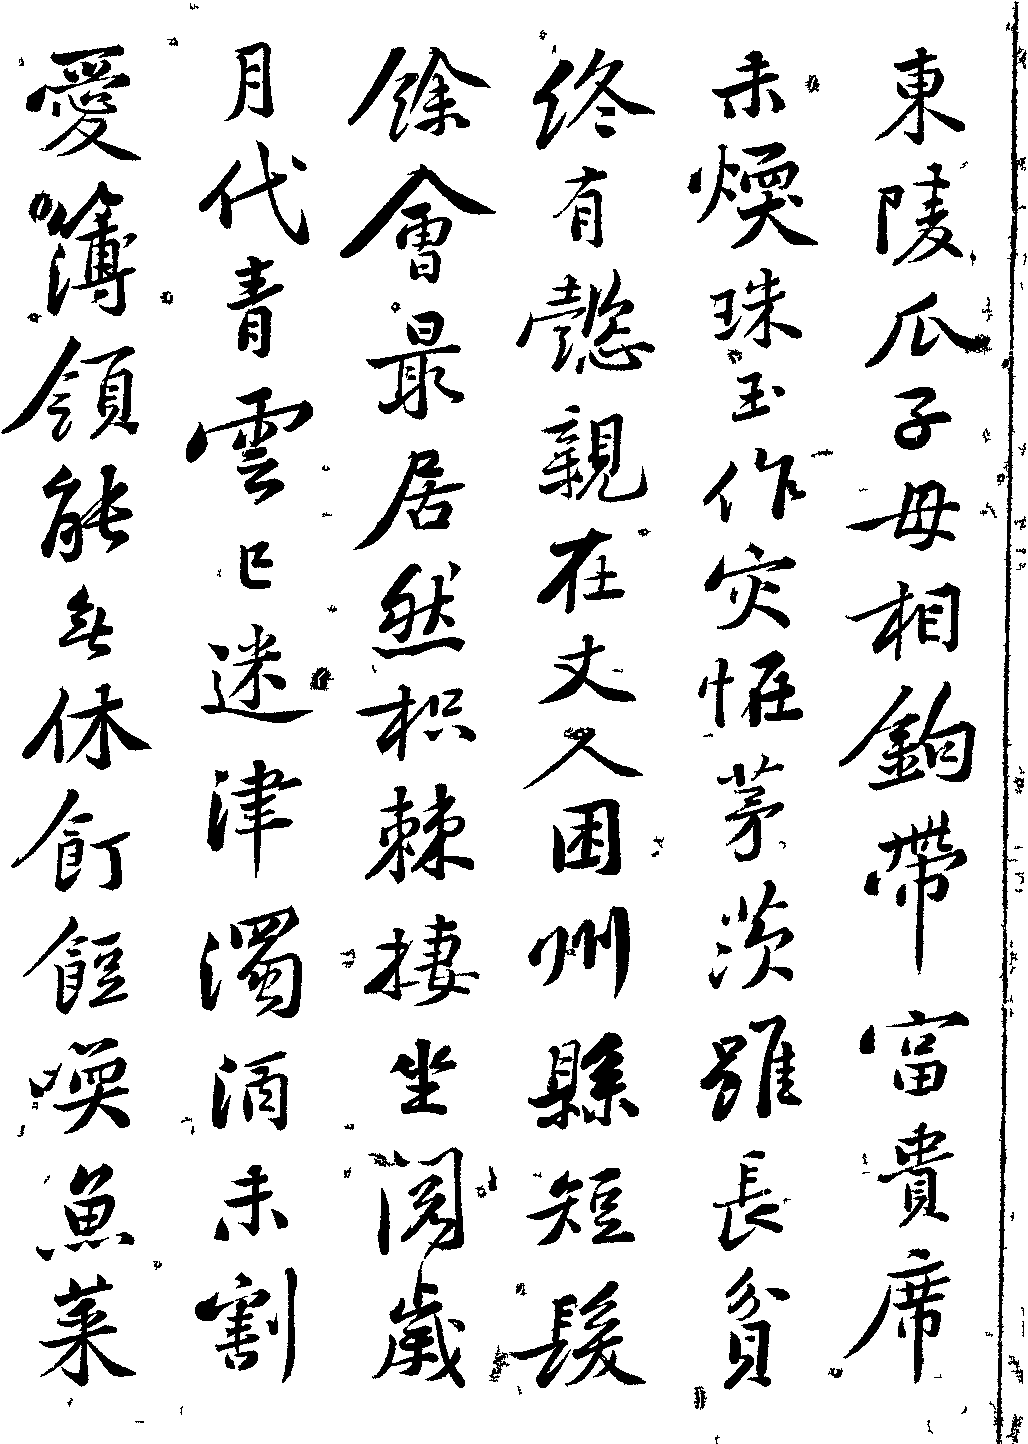 東陵瓜子母相鉤帶富貴席
未煗珠玉作灾惟茅茨雖長貧
終有懿親在丈人困州縣短髮
餘會最居然枳棘棲坐閲歲
月代青雲已迷津濁酒未割
愛簿領能無休飣餖喚魚菜